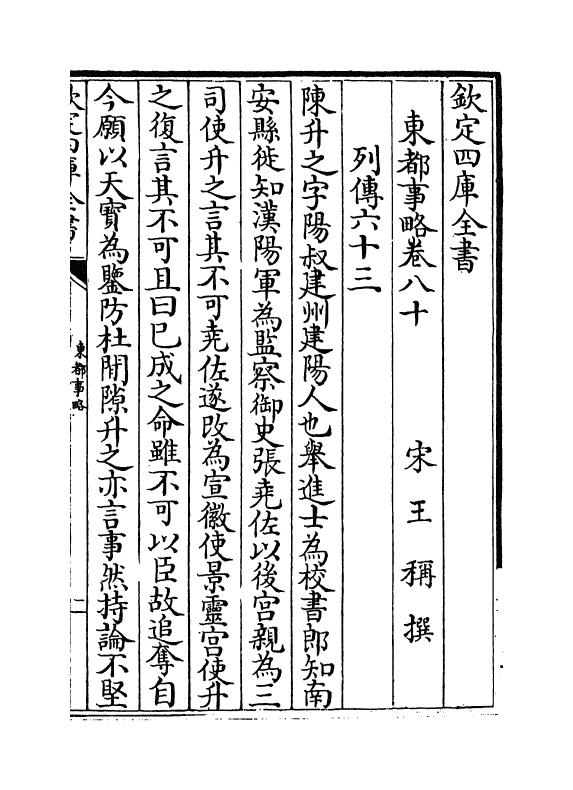 欽定四庫全書
東都事略卷八十
宋 王 稱 撰
列傳六十三
陳升之字陽叔建州建陽人也舉進士為校書郎知南
安縣徙知漢陽軍為監察御史張堯佐以後宮親為三
司使升之言其不可堯佐遂改為宣徽使景靈宮使升
之復言其不可且曰已成之命雖不可以臣故追奪自
今願以天寶為鑒防杜閒隙升之亦言事然持論不堅
欽定四庫全書
東都事略